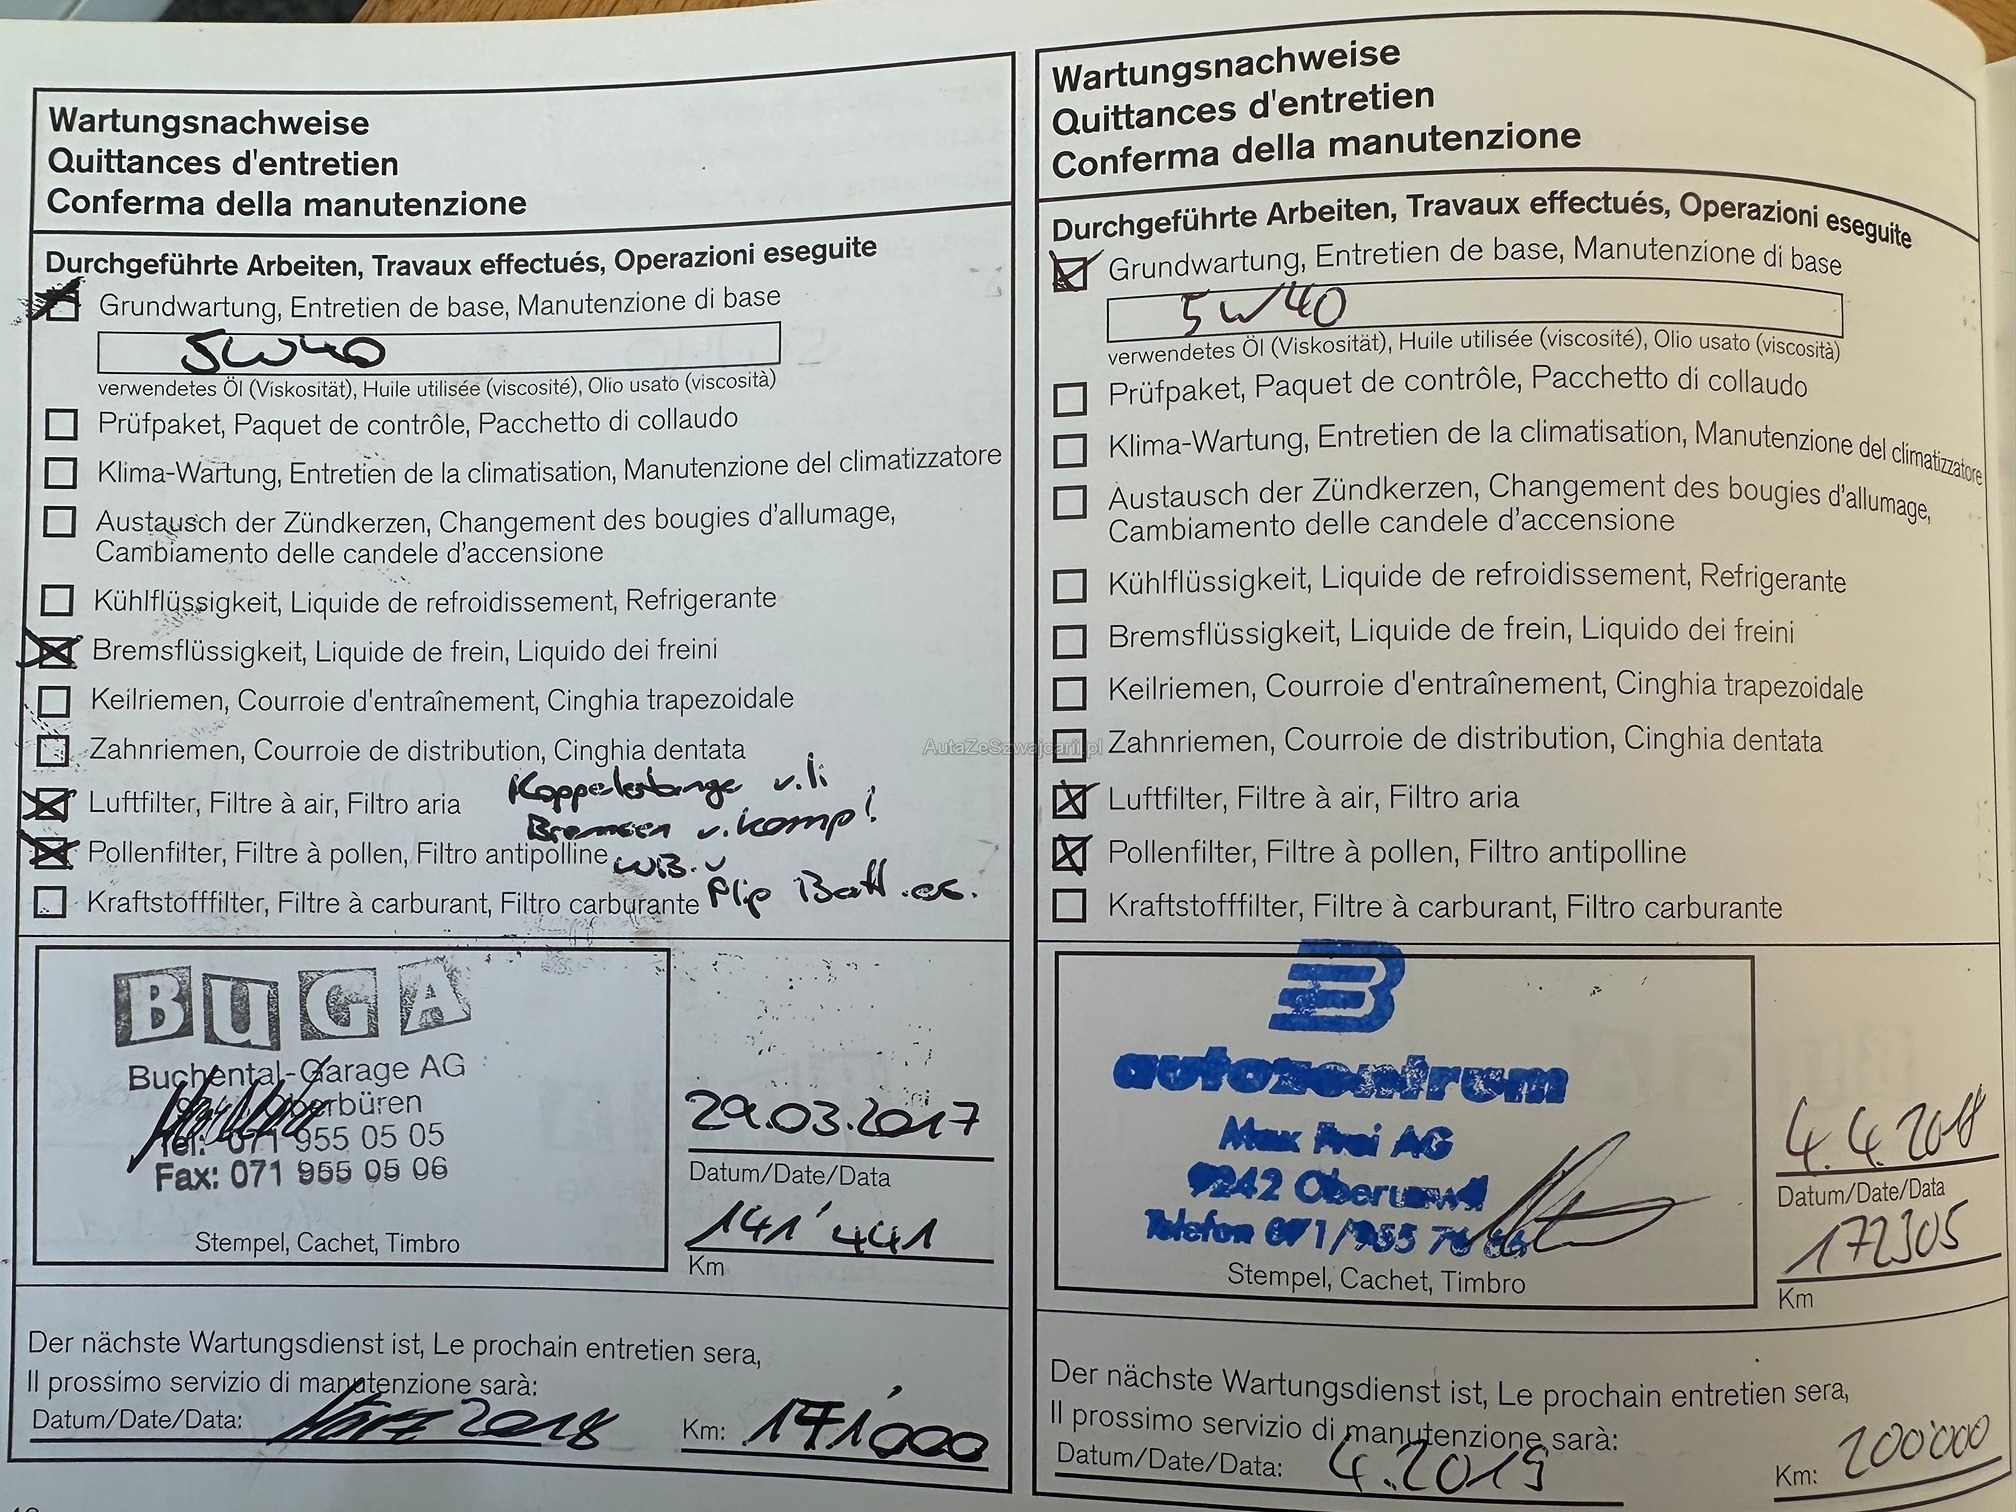 Wartungsnachweise
Quittances d'entretien
Conferma della manutenzione
Durchgeführte Arbeiten, Travaux effectués, Operazioni eseguite
Grundwartung, Entretien de base, Manutenzione di base
5W40
verwendetes Öl (Viskosität), Huile utilisée (viscosité), Olio usato (viscosità)
Prüfpaket, Paquet de contrôle, Pacchetto di collaudo
Klima-Wartung, Entretien de la climatisation, Manutenzione del climatizzatore
Austausch der Zündkerzen, Changement des bougies d'allumage,
Cambiamento delle candele d'accensione
Kühlflüssigkeit, Liquide de refroidissement, Refrigerante
Bremsflüssigkeit, Liquide de frein, Liquido dei freini
Keilriemen, Courroie d'entraînement, Cinghia trapezoidale
Zahnriemen, Courroie de distribution, Cinghia dentata
Koppelstange v.li
Luftfilter, Filtre à air, Filtro aria
Bremsen v. komp!
Pollenfilter, Filtre à pollen, Filtro antipolline
Kraftstofffilter, Filtre à carburant, Filtro carburante
Flip Batt.
BUGA
Buchental-Garage AG
Oberbüren
Tel: 071 955 05 05
Fax: 071 955 05 06
Stempel, Cachet, Timbro
29.03.2017
Datum/Date/Data
141'441
Km
Der nächste Wartungsdienst ist, Le prochain entretien sera,
Il prossimo servizio di manutenzione sarà:
Datum/Date/Data: 2018
Km: 171'000
Wartungsnachweise
Quittances d'entretien
Conferma della manutenzione
Durchgeführte Arbeiten, Travaux effectués, Operazioni eseguite
Grundwartung, Entretien de base, Manutenzione di base
5W40
verwendetes Öl (Viskosität), Huile utilisée (viscosité), Olio usato (viscosità)
Prüfpaket, Paquet de contrôle, Pacchetto di collaudo
Klima-Wartung, Entretien de la climatisation, Manutenzione del climatizzatore
Austausch der Zündkerzen, Changement des bougies d'allumage,
Cambiamento delle candele d'accensione
Kühlflüssigkeit, Liquide de refroidissement, Refrigerante
Bremsflüssigkeit, Liquide de frein, Liquido dei freini
Keilriemen, Courroie d'entraînement, Cinghia trapezoidale
Zahnriemen, Courroie de distribution, Cinghia dentata
Luftfilter, Filtre à air, Filtro aria
Pollenfilter, Filtre à pollen, Filtro antipolline
Kraftstofffilter, Filtre à carburant, Filtro carburante
autozentrum
Max Frei AG
9242 Oberuzwil
Telefon 071/955 76
Stempel, Cachet, Timbro
4.4.2018
Datum/Date/Data
172305
Km
Der nächste Wartungsdienst ist, Le prochain entretien sera,
Il prossimo servizio di manutenzione sarà:
Datum/Date/Data: 4.2019
Km: 200'000
AutaZeSzwajcarii.pl